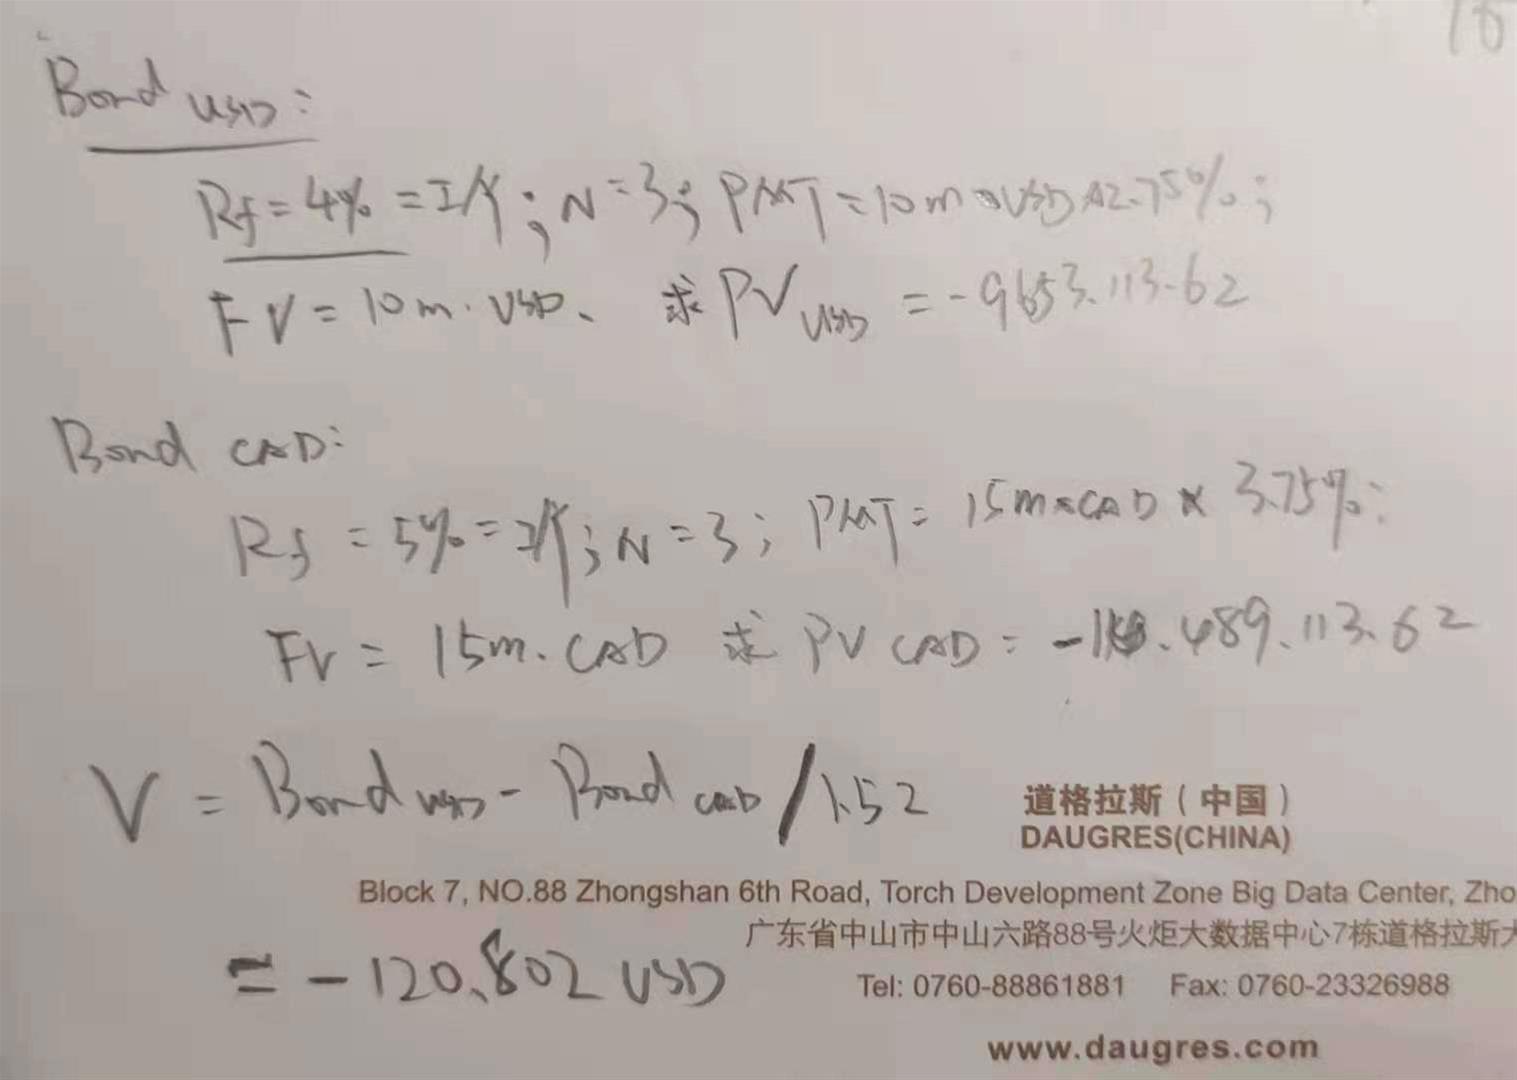 Bond USD:
Rf = 4% = I/Y ; N = 3; PMT = 10m USD x 2.75% ;
FV = 10m. USD、 求 PV USD = -9653.113.62
Bond CAD:
Rf = 5% = I/Y ; N = 3 ; PMT = 15m CAD × 3.75% ;
FV = 15m. CAD 求 PV CAD = .489.113.62
V = Bond USD - Bond CAD / 1.52
= -120.802 USD
道格拉斯（中国）
DAUGRES(CHINA)
Block 7, NO.88 Zhongshan 6th Road, Torch Development Zone Big Data Center, Zho
广东省中山市中山六路88号火炬大数据中心7栋道格拉斯大
Tel: 0760-88861881 Fax: 0760-23326988
www.daugres.com